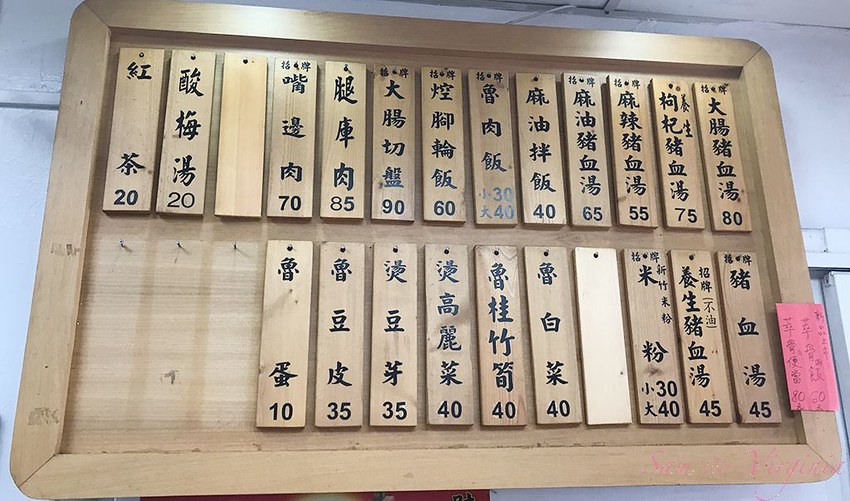 招牌
大腸豬血湯
80
養生
枸杞豬血湯
75
招牌
麻辣豬血湯
55
招牌
麻油豬血湯
65
麻油拌飯
40
招牌
魯肉飯
小30
大40
招牌
焢腳輪飯
60
招牌
大腸切盤
90
腿庫肉
85
招牌
嘴邊肉
70
酸梅湯
20
紅茶
20
招牌
豬血湯
45
招牌(不油)
養生豬血湯
45
招牌
新竹米粉
米粉
小30
大40
魯白菜
40
魯桂竹筍
40
燙高麗菜
40
燙豆芽
35
魯豆皮
35
魯蛋
10
飯 60
便當 80
Virginia